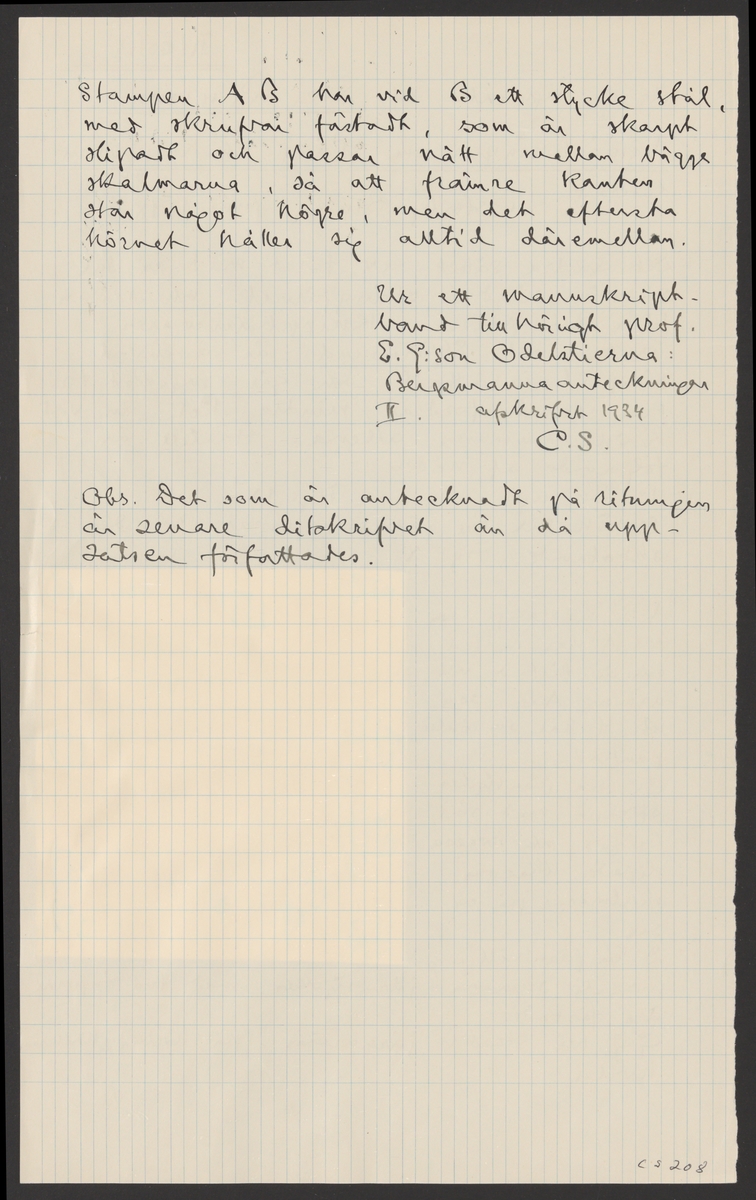 Stampen A B har vid B ett stycke stål,
med skrufvar fästadt, som är skarpt
slipadt och passar nätt mellan bägge
skalmarna, så att främre kanten
står något högre, men det eftersta
hörnet håller sig alltid däremellan.
Ur ett manuskript-
band tillhörigt prof.
E. G:son Odelstierna:
Bergmanna anteckningar
II. afskrifvet 1934
C.S.
Obs. Det som är antecknadt på ritningen
är senare ditskrifvet än då upp-
satsen författades.
CS 208